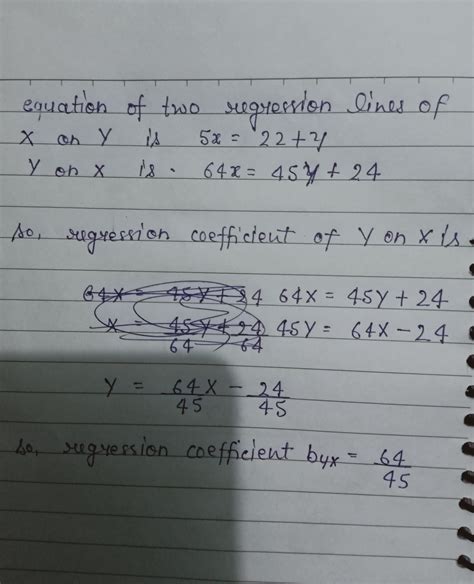 equation of two regression lines of
X on Y is 5x = 22 + y
Y on X is . 64x = 45y + 24
so, regression coefficient of Y on X is
64X = 45Y + 24 64X = 45Y + 24
X = 45Y + 24 45Y = 64X - 24
64 64
Y = 64X/45 - 24/45
so, regression coefficient byx = 64/45